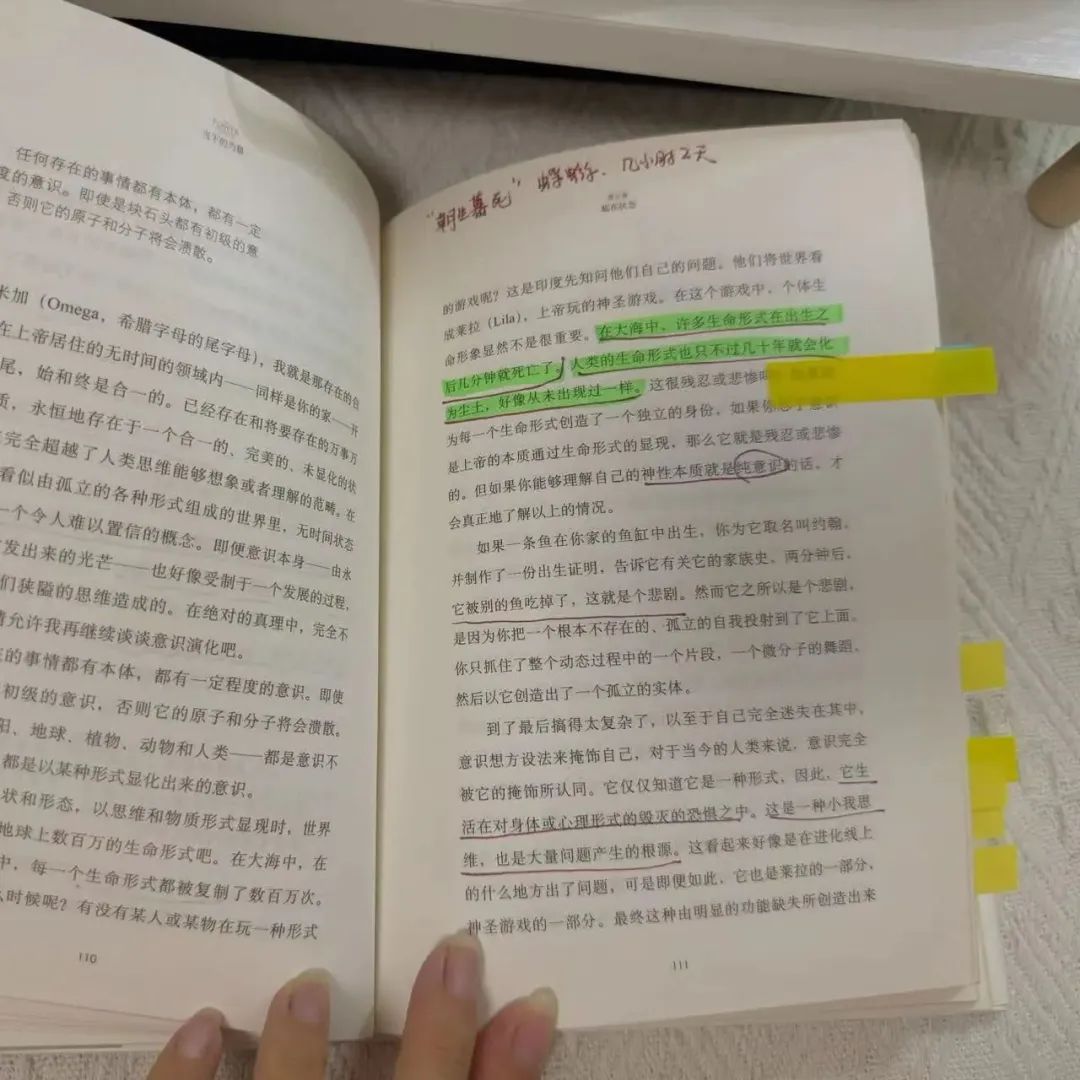 当下的力量
任何存在的事情都有本体，都有一定
度的意识。即使是块石头都有初级的意
否则它的原子和分子将会溃散。
米加（Omega，希腊字母的尾字母），我就是那存在的合
在上帝居住的无时间的领域内——同样是你的家——开
尾，始和终是合一的。已经存在和将要存在的万事万
质，永恒地存在于一个合一的、完美的、未显化的状
完全超越了人类思维能够想象或者理解的范畴。在
看似由孤立的各种形式组成的世界里，无时间状态
一个令人难以置信的概念。即便意识本身——由永
发出来的光芒——也好像受制于一个发展的过程，
们狭隘的思维造成的。在绝对的真理中，完全不
请允许我再继续谈谈意识演化吧。
在的事情都有本体，都有一定程度的意识。即使
初级的意识，否则它的原子和分子将会溃散。
阳、地球、植物、动物和人类——都是意识不
都是以某种形式显化出来的意识。
状和形态，以思维和物质形式显现时，世界
地球上数百万的生命形式吧。在大海中，在
中，每一个生命形式都被复制了数百万次。
么时候呢？有没有某人或某物在玩一种形式
110
“朝生暮死” 蜉蝣、几小时2天
临在状态
的游戏呢？这是印度先知问他们自己的问题。他们将世界看
成莱拉（Lila），上帝玩的神圣游戏。在这个游戏中，个体生
命形象显然不是很重要。在大海中，许多生命形式在出生之
后几分钟就死亡了。人类的生命形式也只不过几十年就会化
为尘土，好像从未出现过一样。这很残忍或悲惨吗
为每一个生命形式创造了一个独立的身份，如果你忘了意识
是上帝的本质通过生命形式的显现，那么它就是残忍或悲惨
的。但如果你能够理解自己的神性本质就是纯意识的话，才
会真正地了解以上的情况。
如果一条鱼在你家的鱼缸中出生，你为它取名叫约翰，
并制作了一份出生证明，告诉它有关它的家族史，两分钟后，
它被别的鱼吃掉了，这就是个悲剧。然而它之所以是个悲剧，
是因为你把一个根本不存在的、孤立的自我投射到了它上面。
你只抓住了整个动态过程中的一个片段，一个微分子的舞蹈，
然后以它创造出了一个孤立的实体。
到了最后搞得太复杂了，以至于自己完全迷失在其中，
意识想方设法来掩饰自己，对于当今的人类来说，意识完全
被它的掩饰所认同。它仅仅知道它是一种形式，因此，它生
活在对身体或心理形式的毁灭的恐惧之中。这是一种小我思
维，也是大量问题产生的根源。这看起来好像是在进化线上
的什么地方出了问题，可是即便如此，它也是莱拉的一部分，
神圣游戏的一部分。最终这种由明显的功能缺失所创造出来
111